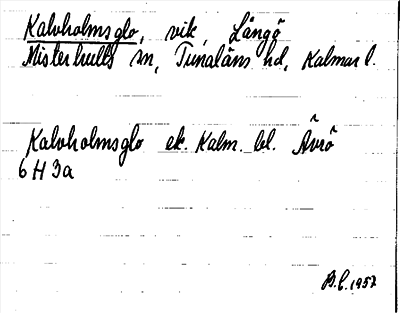 Kalvholmsglo, vik, Långö
Misterhults sn, Tunaläns hd, Kalmar l.
Kalvholmsglo ek. Kalm. bl. Ävrö
6 H 3a
B.C. 1957